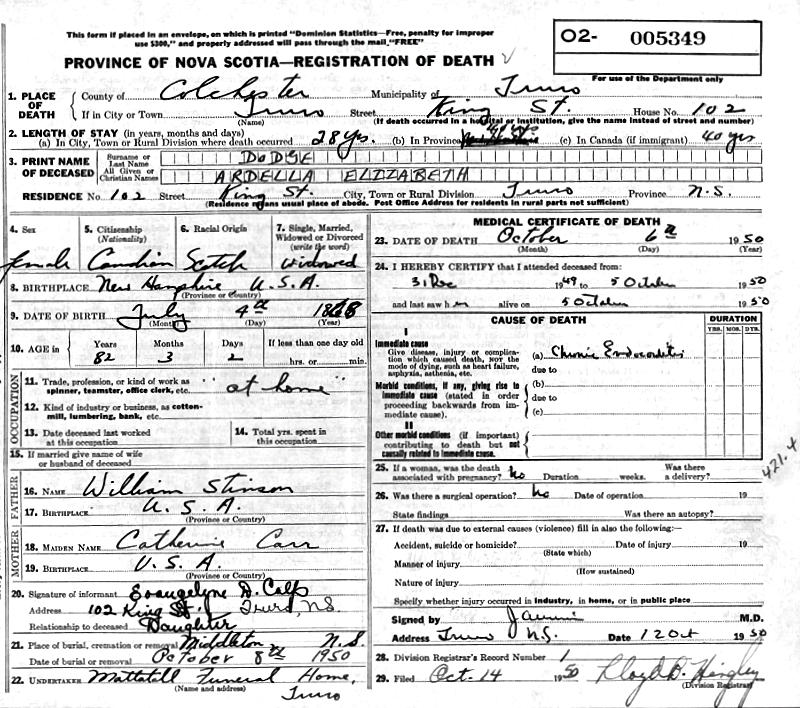 This form if placed in an envelope, on which is printed "Dominion Statistics—Free, penalty for improper
use $300," and properly addressed will pass through the mail, "FREE"
O2- 005349
For use of the Department only
PROVINCE OF NOVA SCOTIA—REGISTRATION OF DEATH
1. PLACE OF DEATH County of Colchester Municipality of Truro
If in City or Town Truro Street King St. House No. 102
(Name) (If death occurred in a hospital or institution, give the name instead of street and number)
2. LENGTH OF STAY (in years, months and days)
(a) In City, Town or Rural Division where death occurred 28 yrs. (b) In Province (c) In Canada (if immigrant) 40 yrs
3. PRINT NAME OF DECEASED
Surname or Last Name DODGE
All Given or Christian Names ARDELLA ELIZABETH
RESIDENCE No. 102 Street King St. City, Town or Rural Division Truro Province N.S.
(Residence means usual place of abode. Post Office Address for residents in rural parts not sufficient)
4. Sex 5. Citizenship (Nationality) 6. Racial Origin 7. Single, Married, Widowed or Divorced (write the word)
female Canadian Scotch Widowed
8. BIRTHPLACE New Hampshire U.S.A.
(Province or Country)
9. DATE OF BIRTH July 4th 1868
(Month) (Day) (Year)
10. AGE in Years Months Days If less than one day old
82 3 2 hrs. or min.
OCCUPATION
11. Trade, profession, or kind of work as spinner, teamster, office clerk, etc. "at home"
12. Kind of industry or business, as cotton-mill, lumbering, bank, etc.
13. Date deceased last worked at this occupation
14. Total yrs. spent in this occupation
15. If married give name of wife or husband of deceased
FATHER
16. NAME William Stinson
17. BIRTHPLACE U.S.A.
(Province or Country)
MOTHER
18. MAIDEN NAME Catherine Carr
19. BIRTHPLACE U.S.A.
(Province or Country)
20. Signature of informant Evangelyne D.
Address 102 King St. Truro, N.S.
Relationship to deceased Daughter
21. Place of burial, cremation or removal Middleton N.S.
Date of burial or removal October 8th 1950
22. UNDERTAKER Mattatall Funeral Home,
(Name and address) Truro
MEDICAL CERTIFICATE OF DEATH
23. DATE OF DEATH October 6th 1950
(Month) (Day) (Year)
24. I HEREBY CERTIFY that I attended deceased from:
31 Dec 1949 to 5 October 1950
and last saw her alive on 5 October 1950
CAUSE OF DEATH DURATION
YRS. MOS. DYS.
I
Immediate cause
Give disease, injury or complication which caused death, NOT the mode of dying, such as heart failure, asphyxia, asthenia, etc.
(a) Chronic Endocarditis
due to
Morbid conditions, if any, giving rise to immediate cause (stated in order proceeding backwards from immediate cause).
(b)
due to
(c)
II
Other morbid conditions (if important) contributing to death but not causally related to immediate cause.
421.4
25. If a woman, was the death associated with pregnancy? no Duration weeks. Was there a delivery?
26. Was there a surgical operation? no Date of operation 19
State findings Was there an autopsy?
27. If death was due to external causes (violence) fill in also the following:—
Accident, suicide or homicide? Date of injury 19
(State which)
Manner of injury
(How sustained)
Nature of injury
Specify whether injury occurred in industry, in home, or in public place
Signed by M.D.
Address Truro N.S. Date 12 Oct 1950
28. Division Registrar's Record Number 1
29. Filed Oct. 14 1950 Lloyd B. Hingley
(Division Registrar)